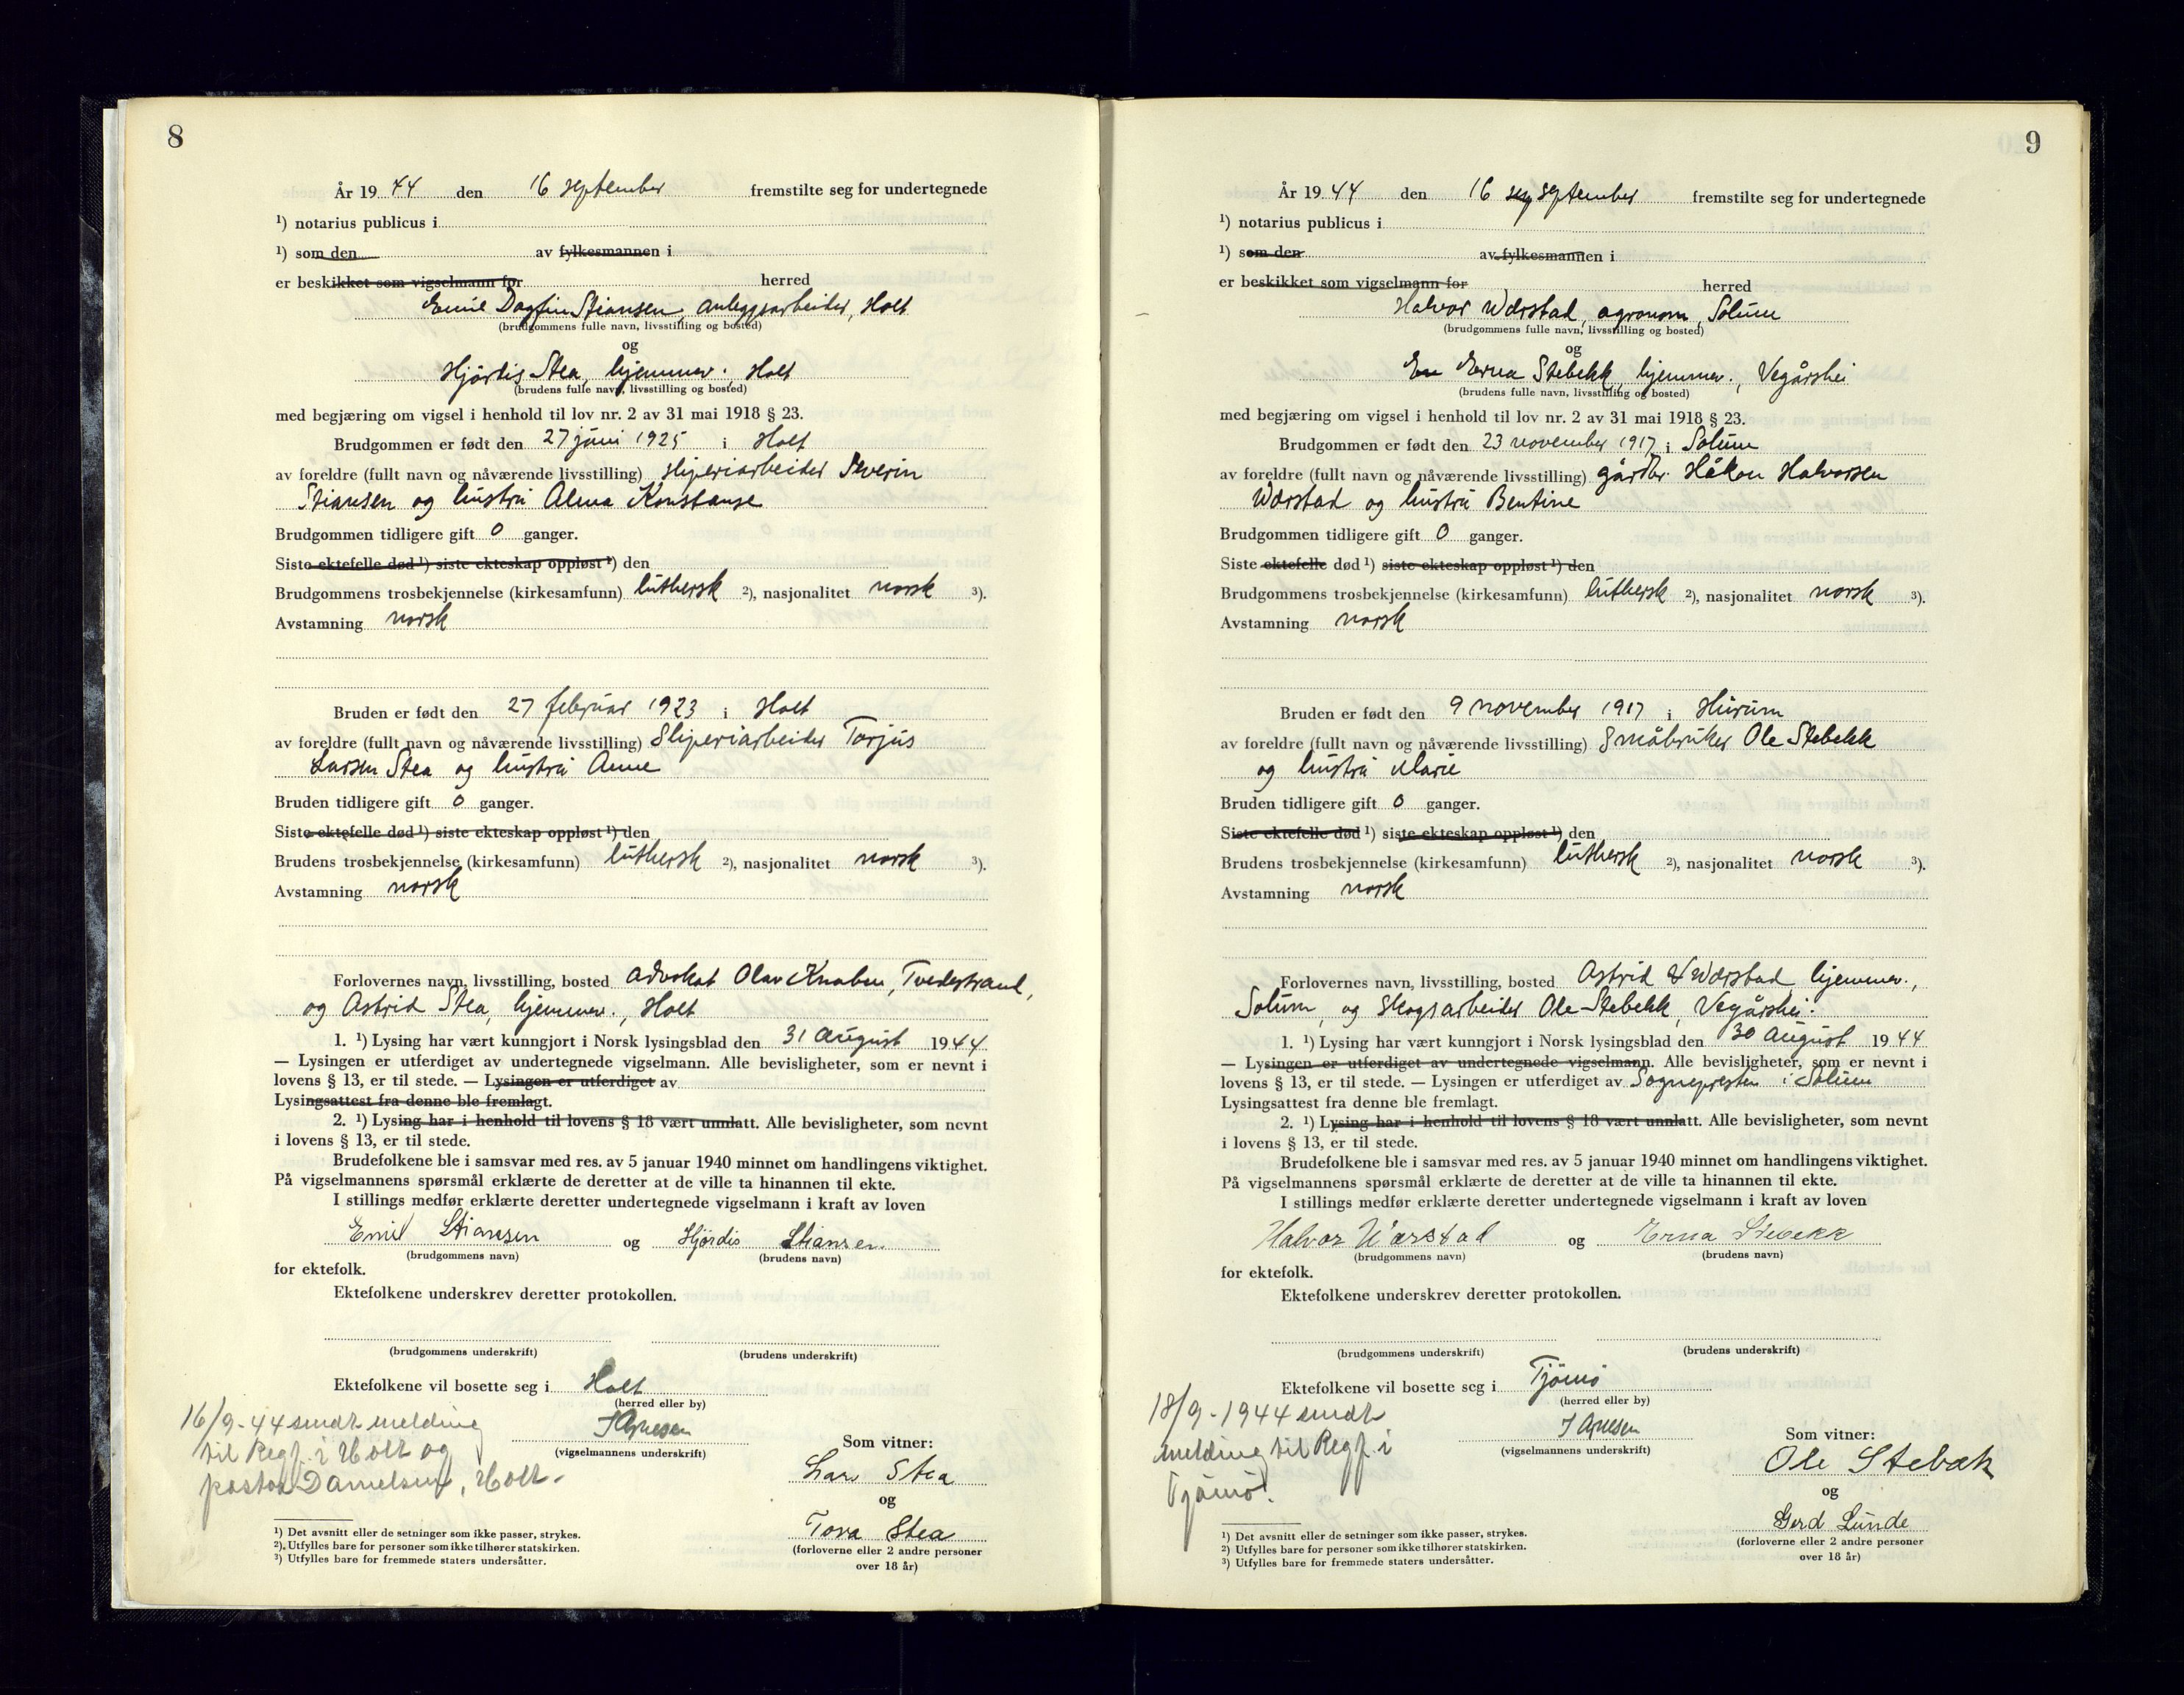 8
År 19 44 den 16 september fremstilte seg for undertegnede
¹) notarius publicus i
¹) som den av fylkesmannen i
er beskikket som vigselmann for herred
Emil Dagfin Stiansen, anleggsarbeider, Holt
(brudgommens fulle navn, livsstilling og bosted)
og
Hjørdis Stea, hjemmev., Holt
(brudens fulle navn, livsstilling og bosted)
med begjæring om vigsel i henhold til lov nr. 2 av 31 mai 1918 § 23.
Brudgommen er født den 27 juni 1925 i Holt
av foreldre (fullt navn og nåværende livsstilling) sliperiarbeider Severin
Stiansen og hustru Alma Konstanse
Brudgommen tidligere gift 0 ganger.
Siste ektefelle død ¹) siste ekteskap oppløst ¹) den
Brudgommens trosbekjennelse (kirkesamfunn) luthersk ²), nasjonalitet norsk ³).
Avstamning norsk
Bruden er født den 27 februar 1923 i Holt
av foreldre (fullt navn og nåværende livsstilling) Sliperiarbeider Torjus
Larsen Stea og hustru Anne
Bruden tidligere gift 0 ganger.
Siste ektefelle død ¹) siste ekteskap oppløst ¹) den
Brudens trosbekjennelse (kirkesamfunn) luthersk ²), nasjonalitet norsk ³).
Avstamning norsk
Forlovernes navn, livsstilling, bosted advokat Olav Knaben, Tvedestrand,
og Astrid Stea, hjemmev., Holt
1. ¹) Lysing har vært kunngjort i Norsk lysingsblad den 31 august 19 44
— Lysingen er utferdiget av undertegnede vigselmann. Alle bevisligheter, som er nevnt i
lovens § 13, er til stede. — Lysingen er utferdiget av
Lysingsattest fra denne ble fremlagt.
2. ¹) Lysing har i henhold til lovens § 18 vært unnlatt. Alle bevisligheter, som nevnt
i lovens § 13, er til stede.
Brudefolkene ble i samsvar med res. av 5 januar 1940 minnet om handlingens viktighet.
På vigselmannens spørsmål erklærte de deretter at de ville ta hinannen til ekte.
I stillings medfør erklærte deretter undertegnede vigselmann i kraft av loven
Emil Stiansen og Hjørdis Stiansen
(brudgommens navn) (brudens navn)
for ektefolk.
Ektefolkene underskrev deretter protokollen.
(brudgommens underskrift) (brudens underskrift)
Ektefolkene vil bosette seg i Holt
(herred eller by)
16/9-44 sendt melding
til Regf. i Holt og
pastor Danielsen, Holt.
(vigselmannens underskrift)
Som vitner:
Lars Stea
og
Tora Stea
(forloverne eller 2 andre personer
over 18 år)
¹) Det avsnitt eller de setninger som ikke passer, strykes.
²) Utfylles bare for personer som ikke tilhører statskirken.
³) Utfylles bare for fremmede staters undersåtter.
9
År 19 44 den 16 sep september fremstilte seg for undertegnede
¹) notarius publicus i
¹) som den av fylkesmannen i
er beskikket som vigselmann for herred
Halvor Wærstad, agronom, Solum
(brudgommens fulle navn, livsstilling og bosted)
og
En Erna Stebekk, hjemmev., Vegårshei
(brudens fulle navn, livsstilling og bosted)
med begjæring om vigsel i henhold til lov nr. 2 av 31 mai 1918 § 23.
Brudgommen er født den 23 november 1917 i Solum
av foreldre (fullt navn og nåværende livsstilling) gårdbr. Håkon Halvorsen
Wærstad og hustru Bentine
Brudgommen tidligere gift 0 ganger.
Siste ektefelle død ¹) siste ekteskap oppløst ¹) den
Brudgommens trosbekjennelse (kirkesamfunn) luthersk ²), nasjonalitet norsk ³).
Avstamning norsk
Bruden er født den 9 november 1917 i Hurum
av foreldre (fullt navn og nåværende livsstilling) Småbruker Ole Stebekk
og hustru Marie
Bruden tidligere gift 0 ganger.
Siste ektefelle død ¹) siste ekteskap oppløst ¹) den
Brudens trosbekjennelse (kirkesamfunn) luthersk ²), nasjonalitet norsk ³).
Avstamning norsk
Forlovernes navn, livsstilling, bosted Astrid Wærstad hjemmev.,
Solum, og skogsarbeider Ole Stebekk, Vegårshei.
1. ¹) Lysing har vært kunngjort i Norsk lysingsblad den 30 august 19 44
— Lysingen er utferdiget av undertegnede vigselmann. Alle bevisligheter, som er nevnt i
lovens § 13, er til stede. — Lysingen er utferdiget av Sognepresten i Solum
Lysingsattest fra denne ble fremlagt.
2. ¹) Lysing har i henhold til lovens § 18 vært unnlatt. Alle bevisligheter, som nevnt
i lovens § 13, er til stede.
Brudefolkene ble i samsvar med res. av 5 januar 1940 minnet om handlingens viktighet.
På vigselmannens spørsmål erklærte de deretter at de ville ta hinannen til ekte.
I stillings medfør erklærte deretter undertegnede vigselmann i kraft av loven
Halvor Wærstad og Erna Stebekk
(brudgommens navn) (brudens navn)
for ektefolk.
Ektefolkene underskrev deretter protokollen.
(brudgommens underskrift) (brudens underskrift)
Ektefolkene vil bosette seg i Tjömö
(herred eller by)
18/9-1944 sendt
melding til Regf. i
Tjömö.
(vigselmannens underskrift)
Som vitner:
Ole Stebæk
og
Gerd Lunde
(forloverne eller 2 andre personer
over 18 år)
¹) Det avsnitt eller de setninger som ikke passer, strykes.
²) Utfylles bare for personer som ikke tilhører statskirken.
³) Utfylles bare for fremmede staters undersåtter.